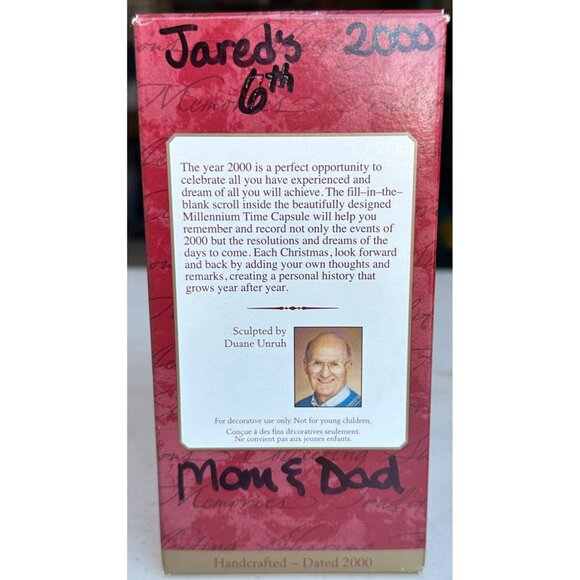 Jared's 2000
6th
The year 2000 is a perfect opportunity to
celebrate all you have experienced and
dream of all you will achieve. The fill–in–the–
blank scroll inside the beautifully designed
Millennium Time Capsule will help you
remember and record not only the events of
2000 but the resolutions and dreams of the
days to come. Each Christmas, look forward
and back by adding your own thoughts and
remarks, creating a personal history that
grows year after year.
Sculpted by
Duane Unruh
For decorative use only. Not for young children.
Conçue à des fins décoratives seulement.
Ne convient pas aux jeunes enfants.
Mom & Dad
Memories
Handcrafted ~ Dated 2000